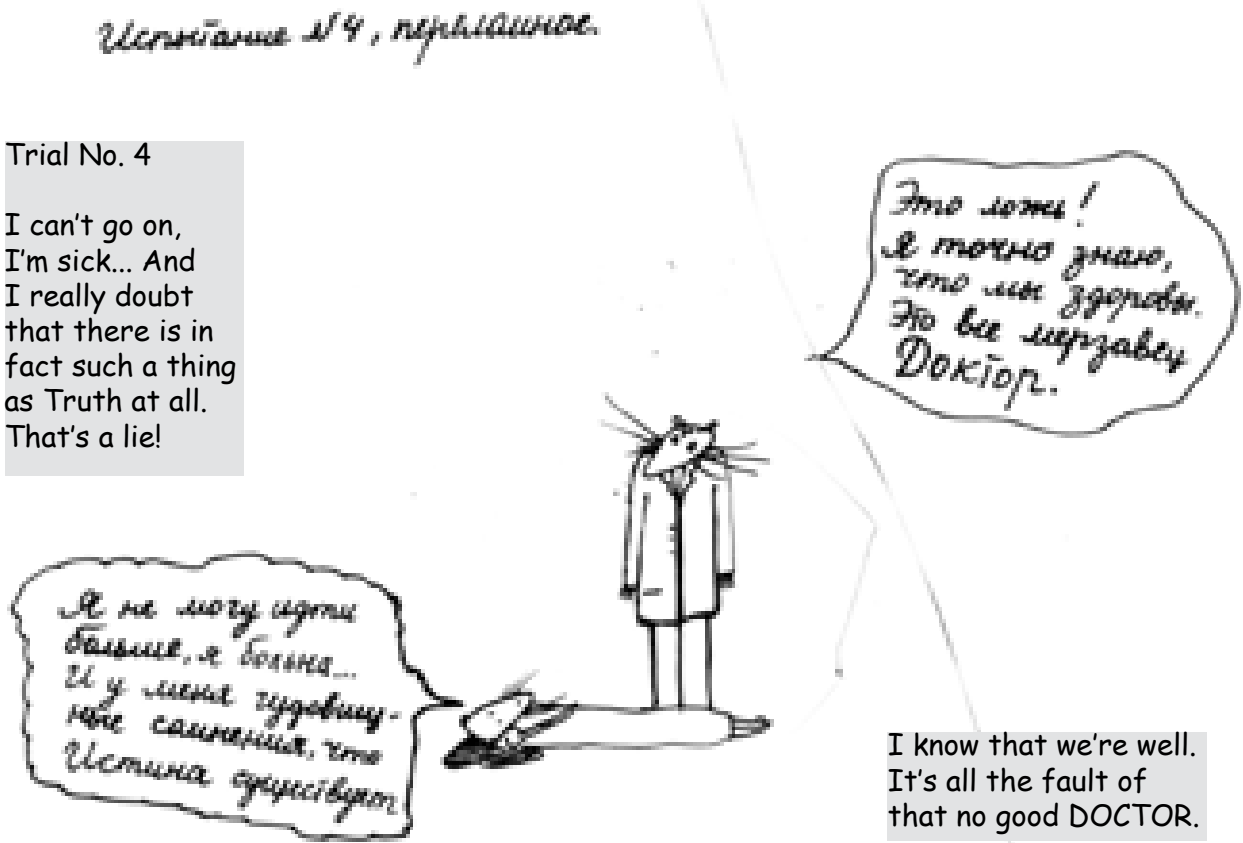 Испытание №4, 
Trial No. 4
I can't go on,
I'm sick... And
I really doubt
that there is in
fact such a thing
as Truth at all.
That's a lie!
Это ложь!
Я точно знаю,
что мы здоровы.
Это все мерзавец
Доктор.
Я не могу идти
больше, я больна...
И у меня чудовищ-
ные сомнения, что
Истина существует
I know that we're well.
It's all the fault of
that no good DOCTOR.